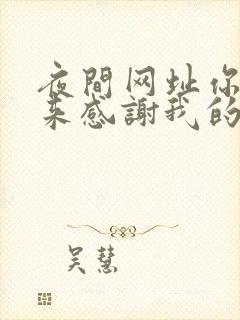 夜間网址你
来感謝我的
吴慧